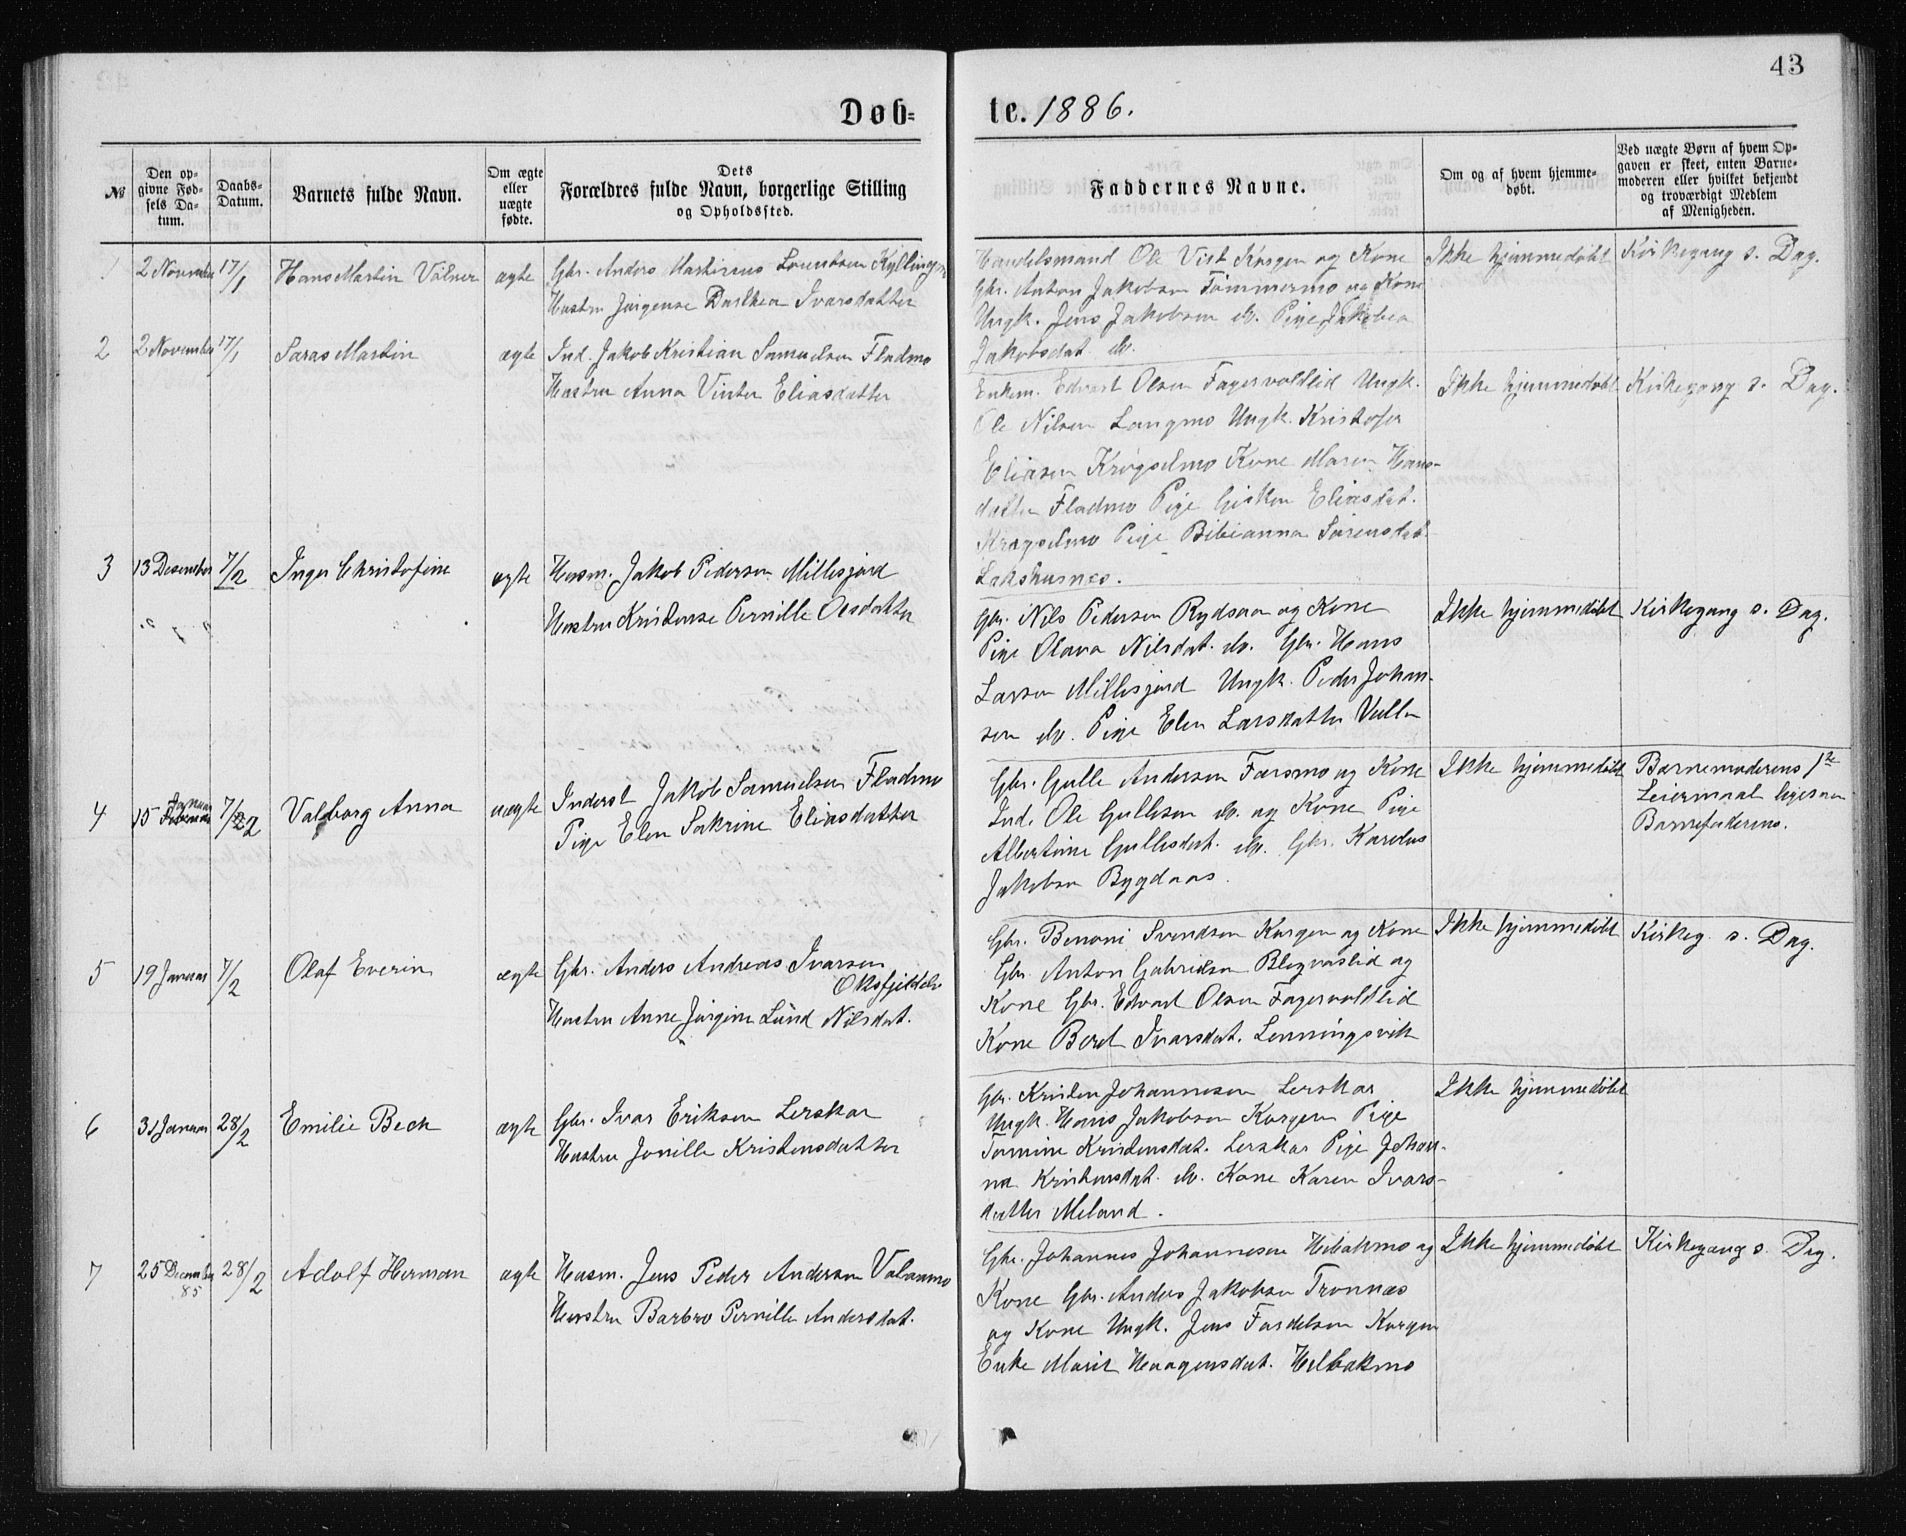 43
Døb= te. 1886.
№
Den op-
givne Fød-
sels Da-
tum.
Daabs-
Datum.
Barnets fulde Navn.
Om ægte
eller
uægte
fødte.
Dets
Forældres fulde Navn, borgerlige Stilling
og Opholdssted.
Faddernes Navne.
Om og af hvem hjemme-
døbt.
Ved uægte Børn af hvem Op-
gaven er skeet, enten Barne-
moderen eller hvilket bekjendt
og troværdigt Medlem
af Menigheden.
1 2 November 17/1 Hans Martin Vilner ægte
Gbr. Anders Martinus
Hustru Jørgense Dorthea Ivarsdatter
Handelsmand Ole Vist Korgen og Kone
Gbr. Anton Jakobsen Tømmermo og Kone
Ungk. Jens Jakobsen do. Pige Jakobea
Jakobsdat. do.
Ikke hjemmedøbt
Kirkegang s. Dag.
2 2 November 17/1 Saras Martin ægte
Ind. Jakob Kristian Samuelsen Fladmo
Hustru Anna Vinter Eliasdatter
Enkem. Edvart Olsen Fagervoldlid Ungk.
Ole Nilsen Langmo Ungk. Kristofer
Eliasen Krogselmo Kone Maren Hans-
datter Fladmo Pige Gisken Eliasdat.
Krogselmo Pige Bibianna Sørensdat.
Lakshusnes.
Ikke hjemmedøbt
Kirkegang s. Dag.
3 13 Desember 7/2 Inger Christofine ægte
Husm. Jakob Pedersen Millisjord
Hustru Kristense Pernille Olsdatter
Gbr. Nils Pedersen Rydsaa og Kone
Pige Olava Nilsdat. do. Gbr. Hans
Larsen Millisjord Ungk. Peder Johan-
sen do. Pige Elen Larsdatter
Ikke hjemmedøbt
Kirkegang s. Dag.
4 15 Januar 7/2 Valborg Anna uægte
Inderst Jakob Samuelsen Fladmo
Pige Elen Sakrine Eliasdatter
Gbr. Gulle Andersen Farsmo og Kone
Ind. Ole Gullesen do. og Kone Pige
Albertine Gullesdat. do. Gbr. Karelus
Jakobsen Bygdaas.
Ikke hjemmedøbt
Barnemoderens 1ste
Leiermaal ligesaa
Barnefaderens.
5 19 Januar 7/2 Olaf Everin ægte
Gbr. Anders Andreas Ivarsen
Oksfjeldli
Hustru Anne Jørgine Lund Nilsdat.
Gbr. Benoni Svendsen Korgen og Kone
Gbr. Anton Gabrielsen og
Kone Gbr. Edvart Olsen Fagervoldlid
Kone Beret Ivarsdat. Lenningsvik
Ikke hjemmedøbt
Kirkeg. s. Dag.
6 31 Januar 28/2 Emilie Beck ægte
Gbr. Ivar Eriksen Lerskar
Hustru Jonille Kristensdatter
Gbr. Kristen Johannesen Lerskar
Ungk. Hans Jakobsen Korgen Pige
Tomine Kristensdat. Lerskar Pige Johan-
na Kristensdat. do. Kone Karen Ivars-
datter Meland.
Ikke hjemmedøbt
7 25 December 85 28/2 Adolf Herman ægte
Husm. Jens Peder Andersen Valaamo
Hustru Barbro Pernille Andersdat.
Gbr. Johannes Johannesen Hilbakmo og
Kone Gbr. Anders Jakobsen Tronnæs
og Kone Ungk. Jens Fardelsen Korgen
Enke Marit Haagensdat. Hilbakmo
Ikke hjemmedøbt
Kirkegang s. Dag.